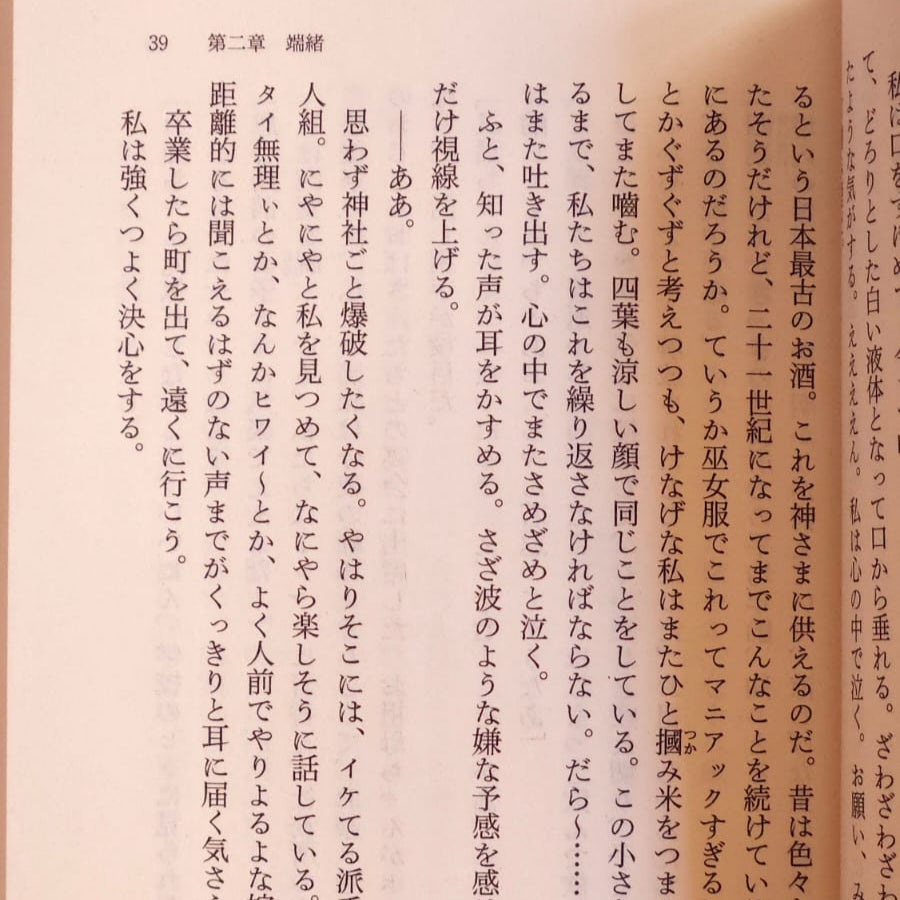 39 第二章 端緒
て、どろりとした白い液体となって口から垂れる。ざわざわざわ
たような気がする。ええええん。私は心の中で泣く。お願い、み
るという日本最古のお酒。これを神さまに供えるのだ。昔は色々
たそうだけれど、二十一世紀になってまでこんなことを続けてい
にあるのだろうか。ていうか巫女服でこれってマニアックすぎる
とかぐずぐずと考えつつも、けなげな私はまたひと摑み米をつま
つか
してまた嚙む。四葉も涼しい顔で同じことをしている。この小さ
るまで、私たちはこれを繰り返さなければならない。だら〜……
はまた吐き出す。心の中でまたさめざめと泣く。
ふと、知った声が耳をかすめる。さざ波のような嫌な予感を感
だけ視線を上げる。
――ああ。
思わず神社ごと爆破したくなる。やはりそこには、イケてる派
人組。にやにやと私を見つめて、なにやら楽しそうに話している。
タイ無理ぃとか、なんかヒワイ〜とか、よく人前でやりよるよな
距離的には聞こえるはずのない声までがくっきりと耳に届く気さ
卒業したら町を出て、遠くに行こう。
私は強くつよく決心をする。